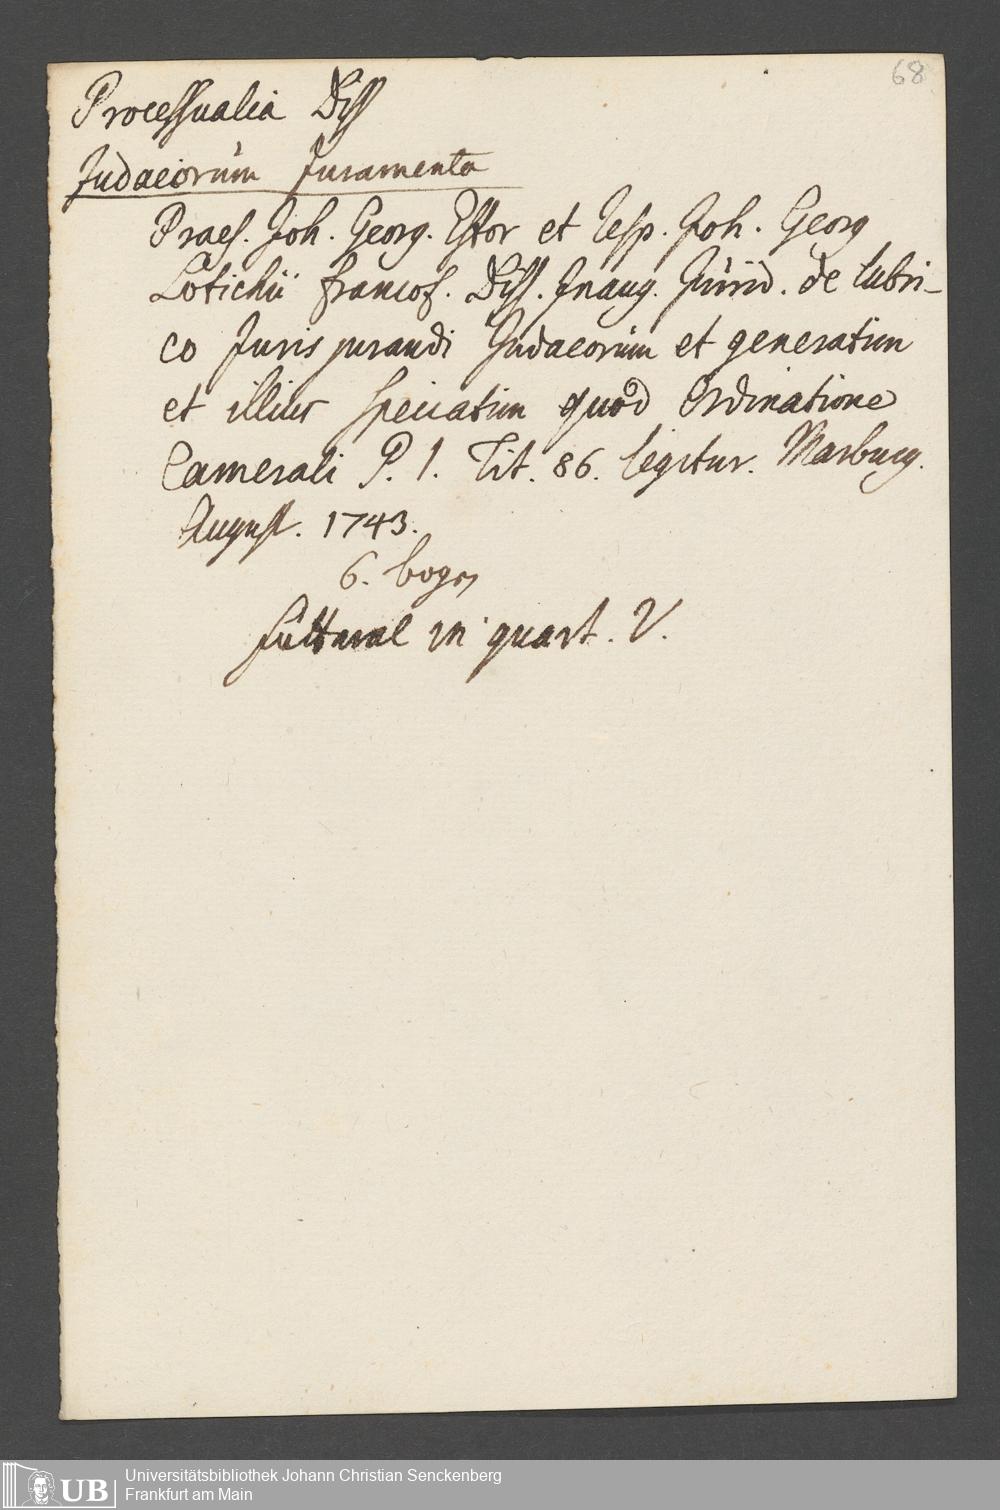 68
Processualia Diss
Judaeorum Juramenta
Praes. Joh. Georg. Estor et resp. Joh. Georg
Lotichii francof. Diss. Inaug. Jurid. de lubri-
co Juris jurandi Judaeorum et generatim
et illius speciatim quod Ordinatione
Camerali P. 1. Tit. 86. legitur. Marburg.
August. 1743.
6. bogen
futteral in quart. V.
Universitätsbibliothek Johann Christian Senckenberg
Frankfurt am Main
UB